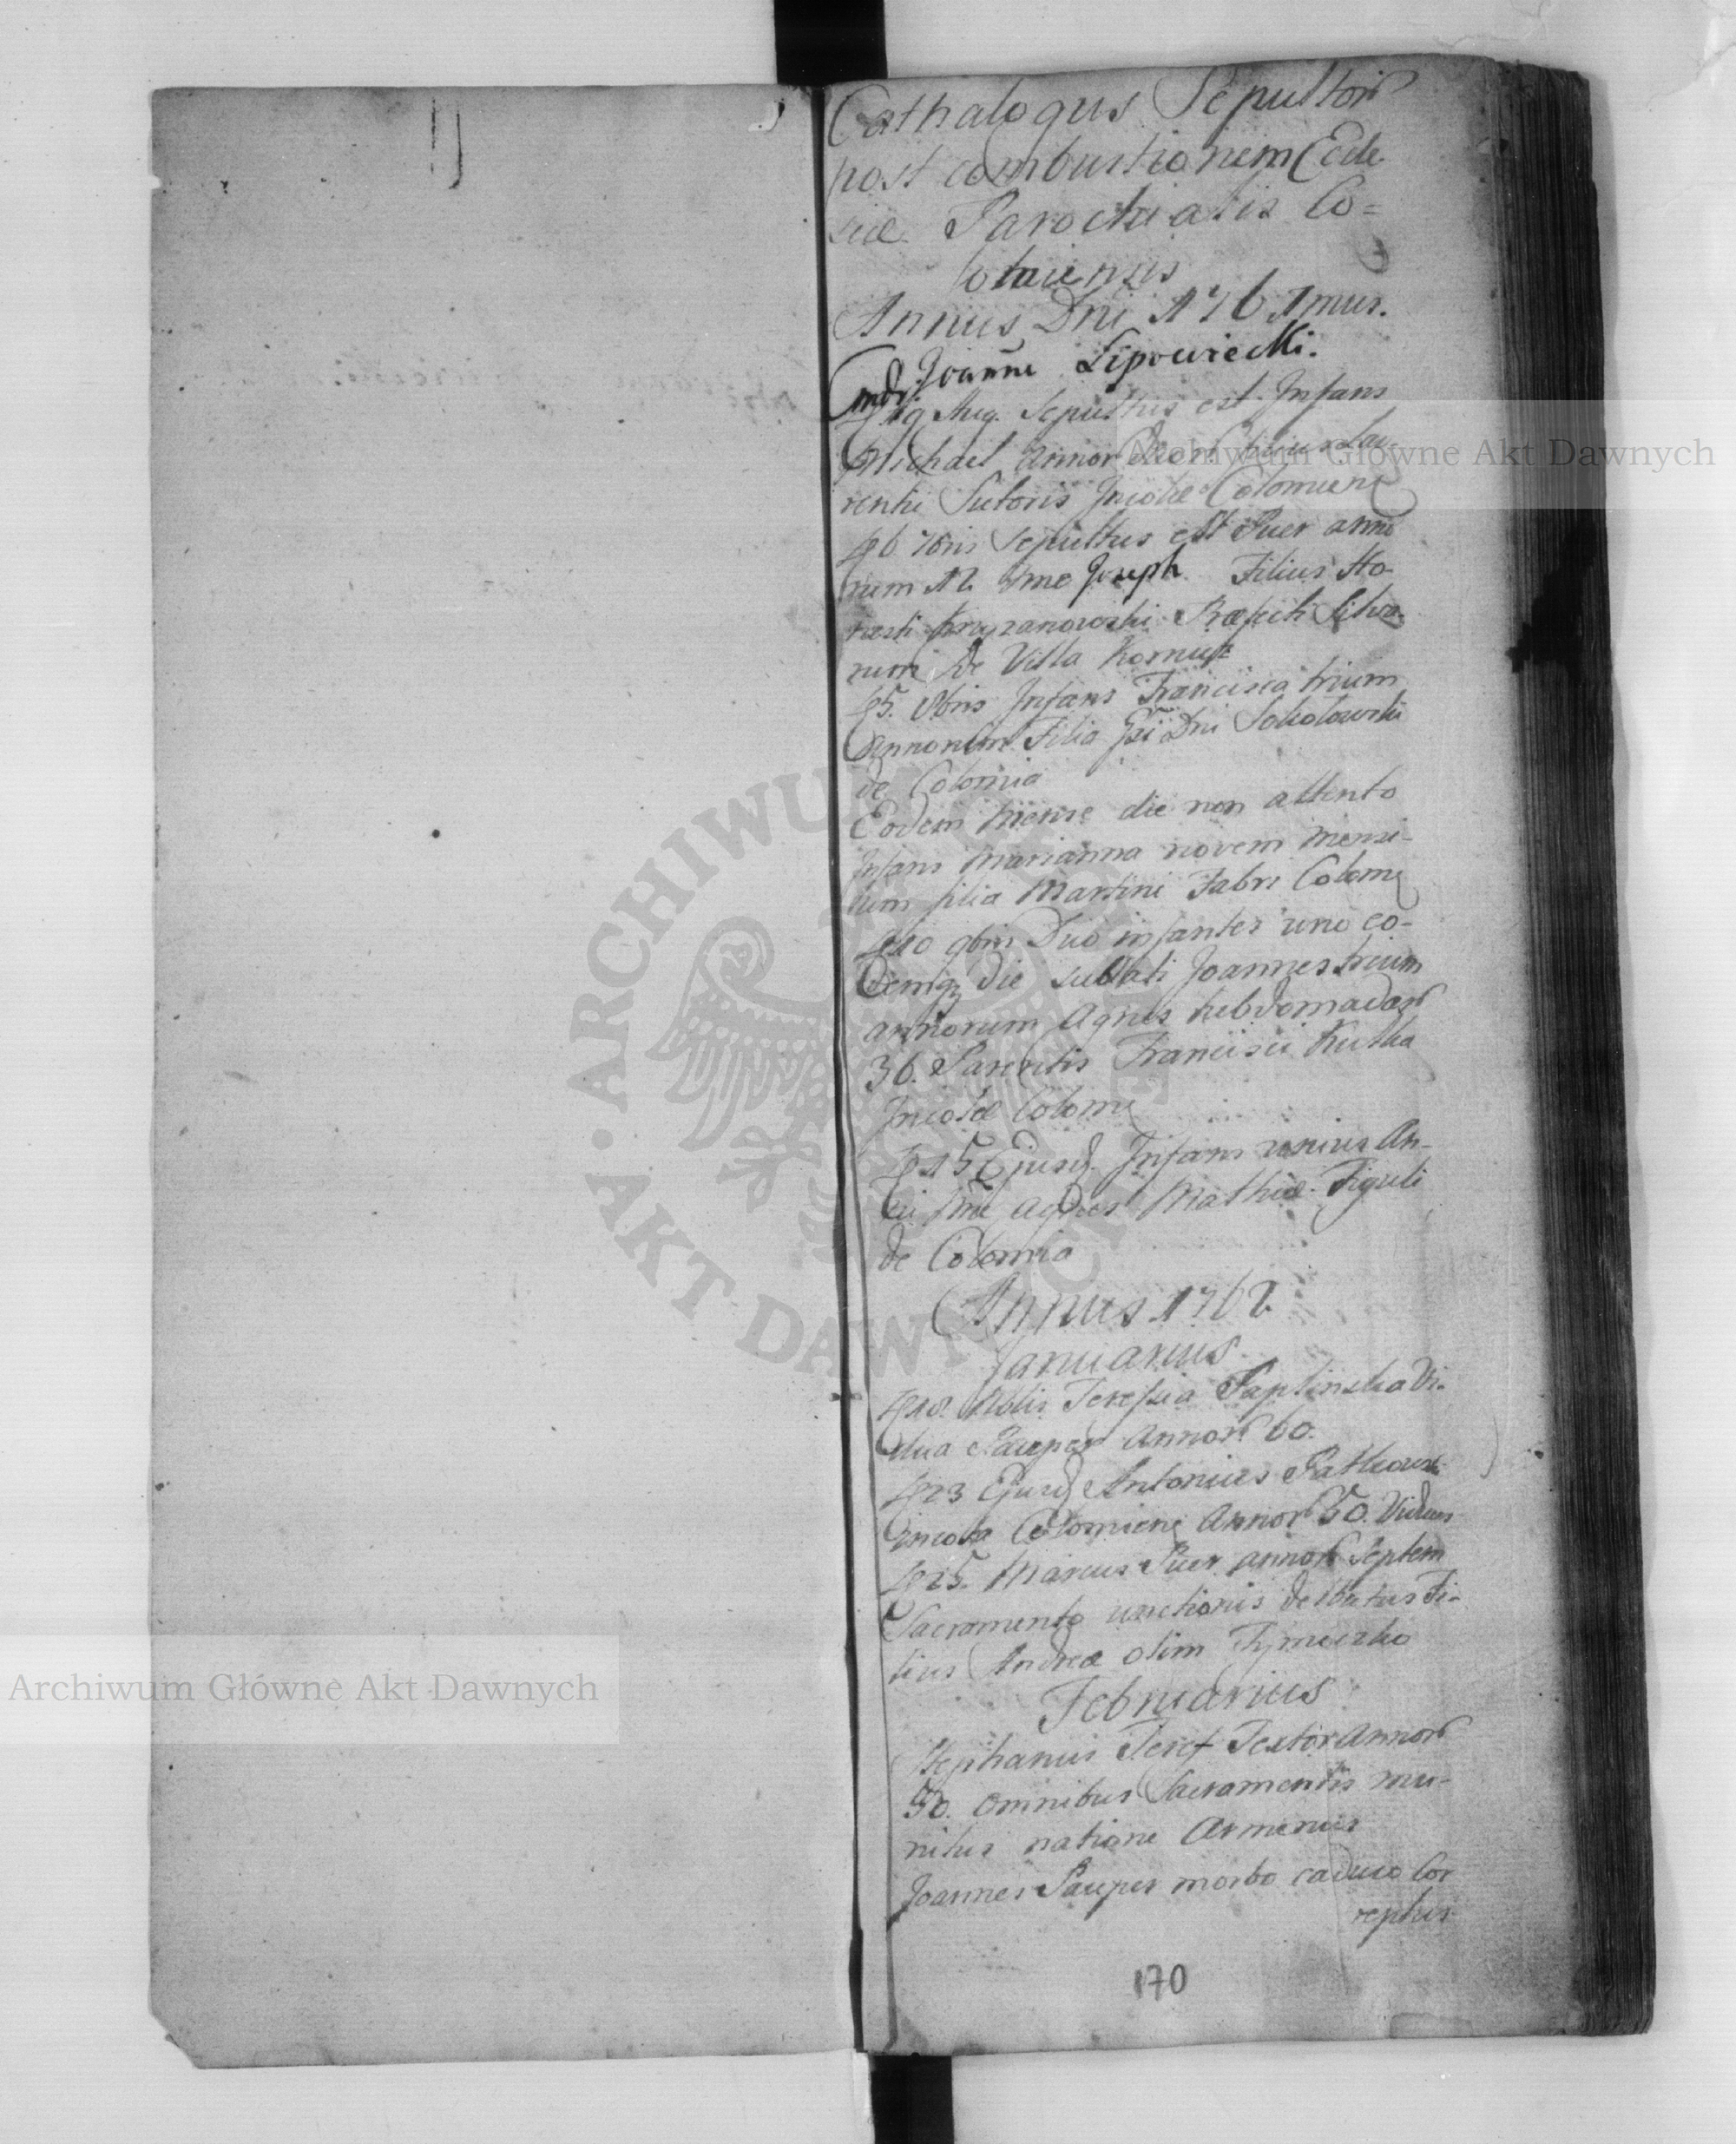 Cathalogus Sepultor
post combustionem Eccle
siæ Parochialis Co=
lomiensis
Annus Dni 1761mus.
Joanne Lipowiecki.
19 Aug. Sepultus est Infans
Michael Annor Filius Lau-
rentii Sutoris Incolæ Colomien
6 7bris Sepultus est Puer anno
rum 12 Nne Joseph Filius Ho-
nesti Krzyzanowski Præfecti Silva-
rum de Villa
5. 8bris Infans Francisca trium
Annorum Filia Gsi Dni Sokolowski
de Colomia
Eodem Mense die non attento
Infans Marianna novem Mensi-
um filia Martini Fabri Colom
10 9bris Duo infantes uno eo-
demq die sublati Joannes trium
annorum Agnes hebdomadar
36. Parentis Francisci Kutka
Incolæ Colom
15 Ejusd. Infans unius An-
ni Nne Agnes Mathiæ Figuli
de Colomia
Annus 1762
Januarius
18. Nblis Teressia Paplinska Vi-
dua Pauper Annor 60.
23 Ejusd Antonius Patkows
incola Colomien Annor 50. Viduus
25. Marcus Puer annor Septem
Sacramento unctionis delibutus Fi-
lius Andreæ olim
Februarius
Stephanus Teref Textor Annor
50. omnibus Sacramentis mu-
nitus natione Armenus
Joannes Pauper morbo caduco Cor
reptus
170
Archiwum Główne Akt Dawnych
Archiwum Główne Akt Dawnych
ARCHIWUM
AKT DAWNYCH